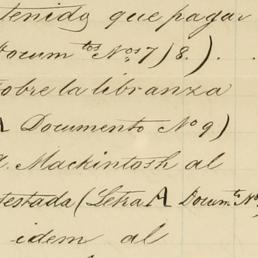 tenido que pagar
Docum tos Nos 7, 8.) . .
sobre la libranza
A Documento No 9)
d. Mackintosh al
testada (Letra A Docum. to No
idem al